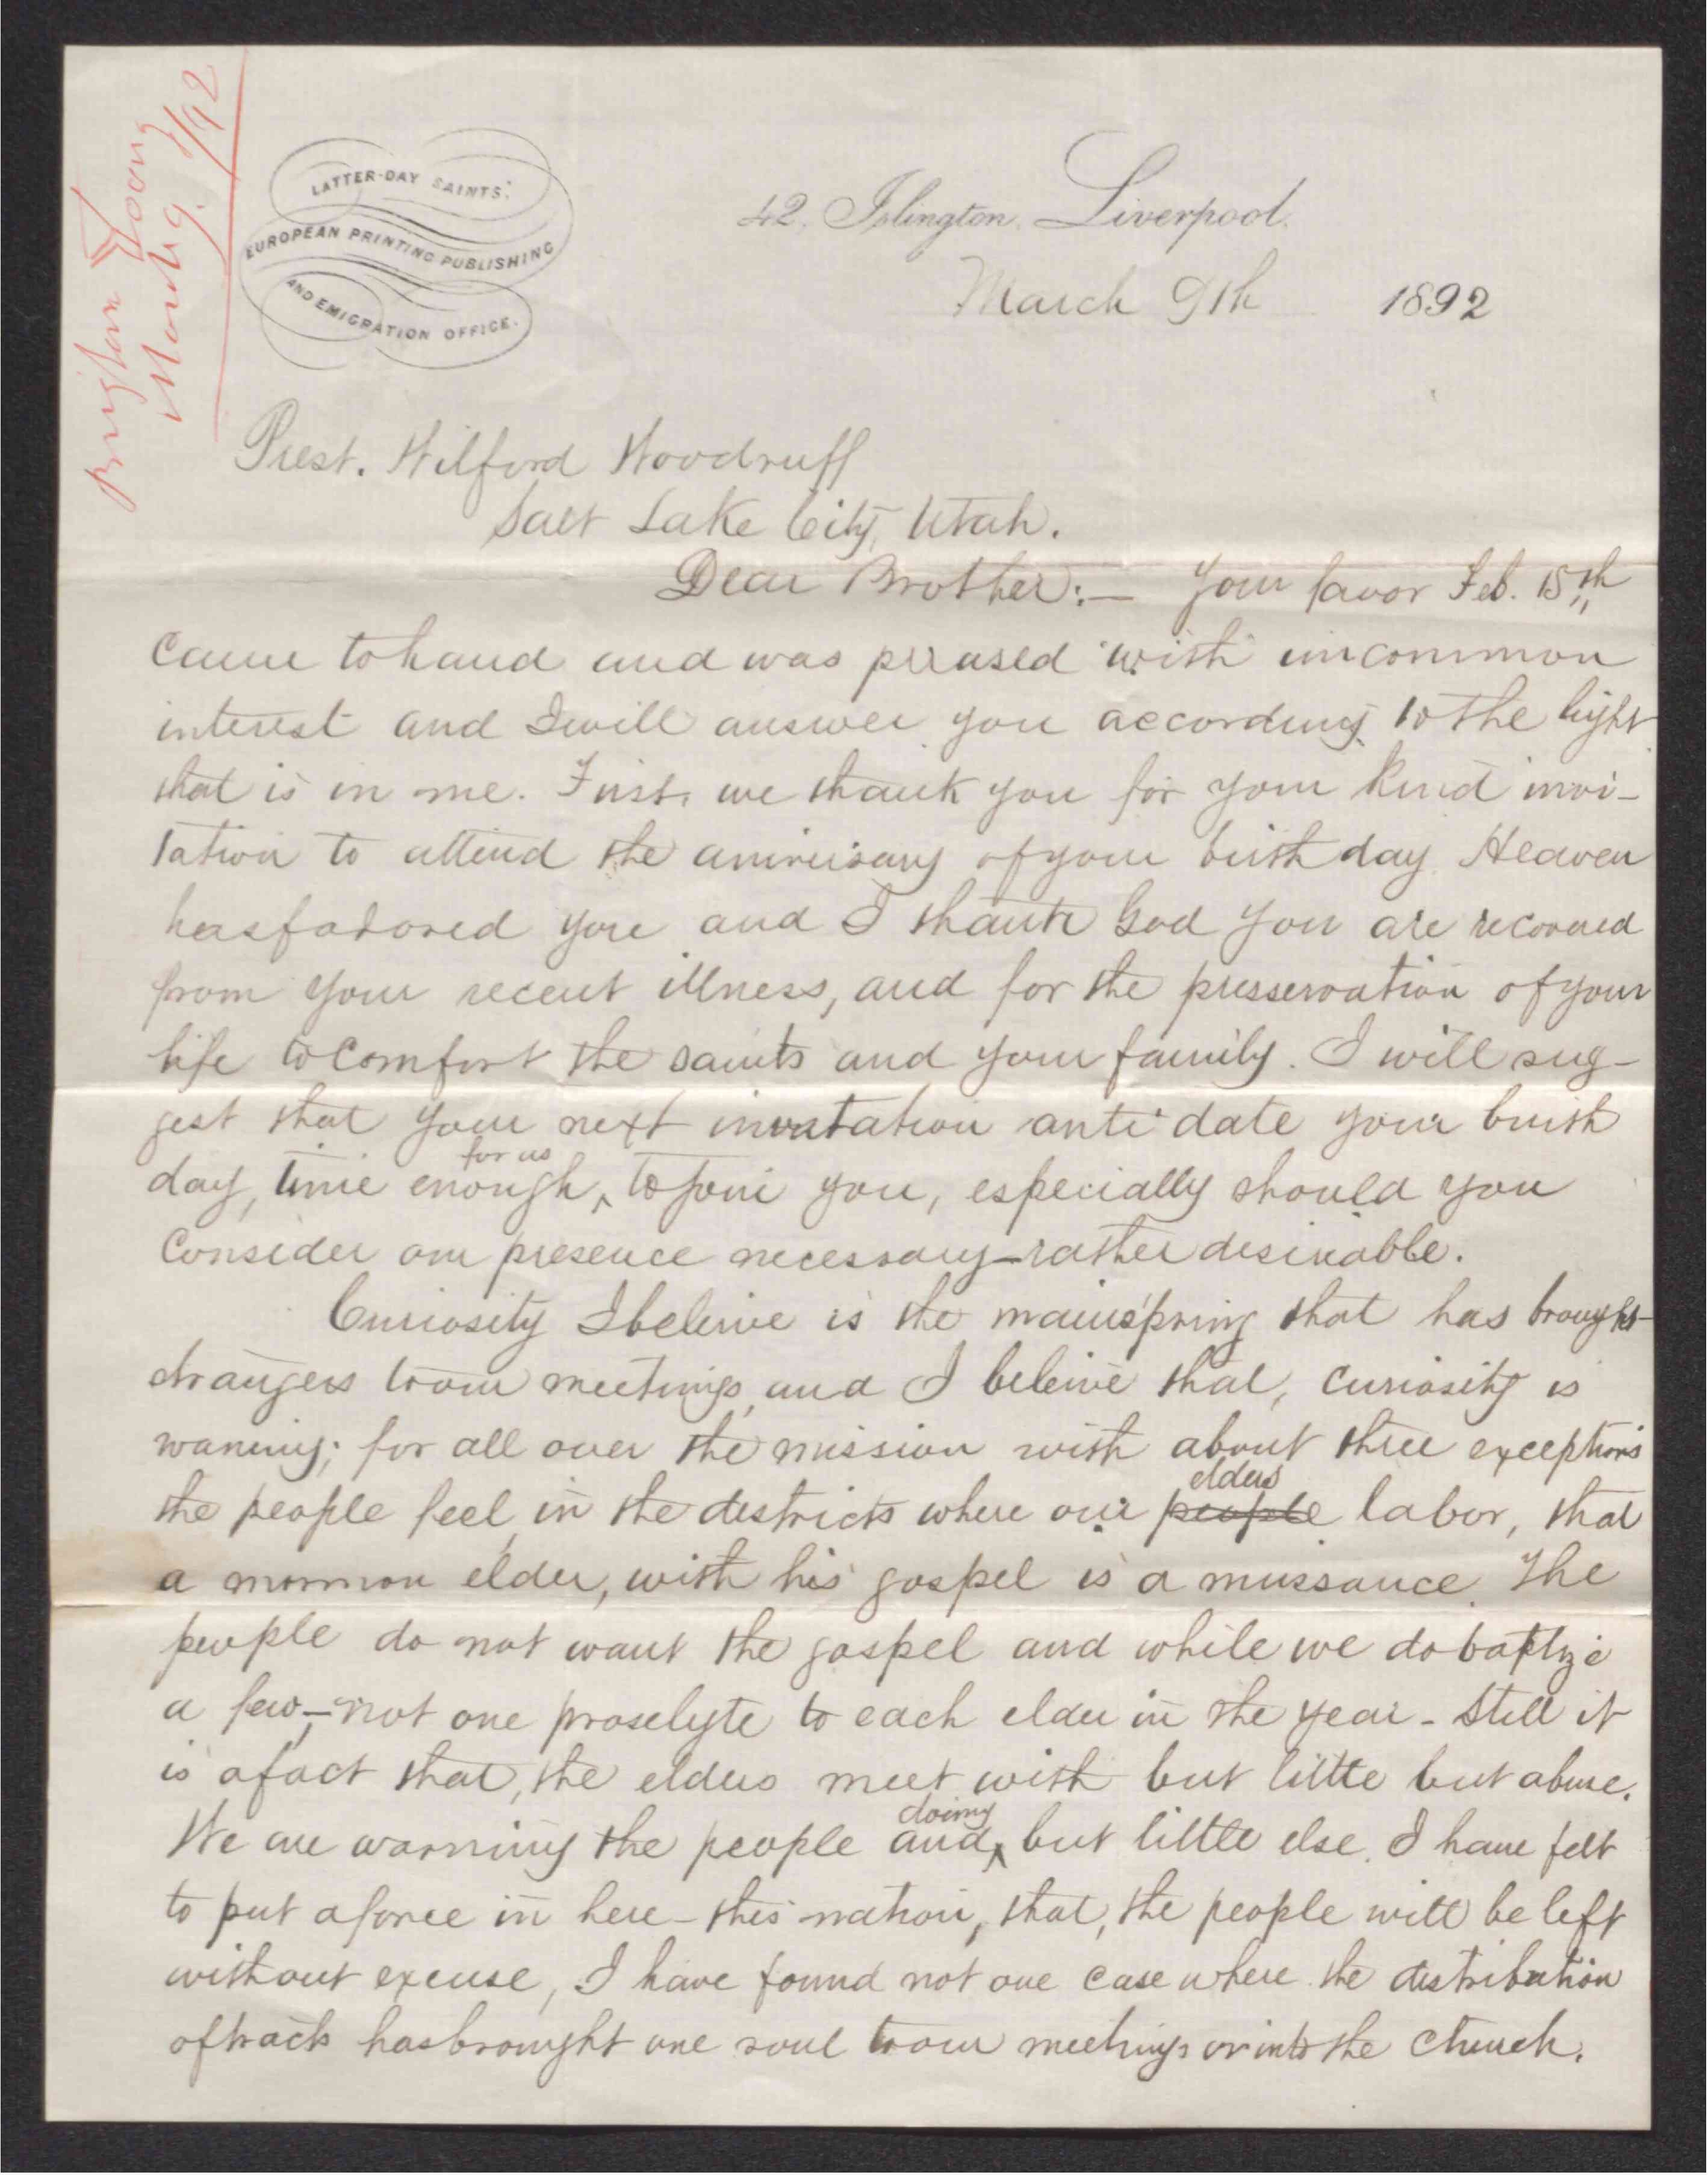 Brigham Young
March 9. /92
LATTER-DAY SAINTS'
EUROPEAN PRINTING PUBLISHING
AND EMIGRATION OFFICE.
42, Islington, Liverpool.
March 9th 1892
Prest. Wilford Woodruff
Salt Lake City, Utah.
Dear Brother:— Your favor Feb. 15th
came to hand and was perused with uncommon
interest and I will answer you according to the light
that is in me. First, we thank you for your kind invi-
tation to attend the aniversary of your birth day. Heaven
has favored you and I thank God you are recovered
from your recent illness, and for the presservation of your
life to comfort the saints and your family. I will sug-
gest that your next invatation anti date your birth
day, time enough, for us to join you, especially should you
consider our presence necessary—rather desirable.
Curiosity I beleive is the mainspring that has brought
strangers to our meetings, and I beleive that, curiosity is
waning; for all over the mission with about three exceptions
the people feel, in the districts where our people elders labor, that
a mormon elder, with his gospel is a nuissance. The
people do not want the gospel and while we do baptize
a few—not one proselyte to each elder in the year - still it
is a fact that, the elders meet with but little but abuse.
We are warning the people and doing but little else. I have felt
to put a force in here - this nation, that, the people will be left
without excuse, I have found not one case where the distribution
of tracts has brought one soul to our meetings or into the church.